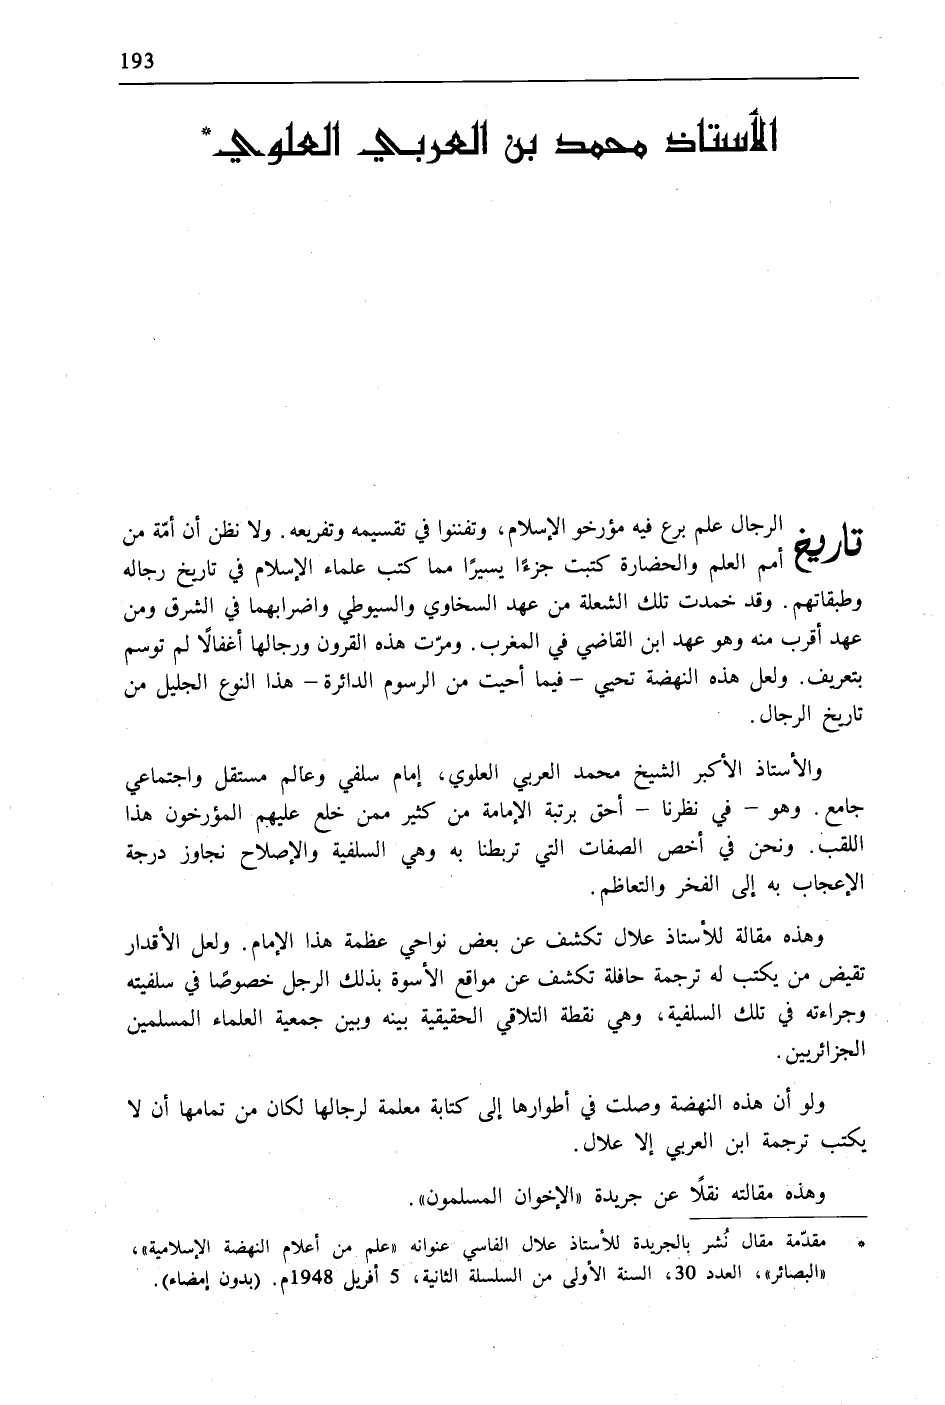 193
الأستاذ محمد بن العربي العلوي*
تاريخ الرجال علم برع فيه مؤرخو الإسلام، وتفننوا في تقسيمه وتفريعه. ولا نظن أن أمّة من
أمم العلم والحضارة كتبت جزءًا يسيرًا مما كتب علماء الإسلام في تاريخ رجاله
وطبقاتهم. وقد خمدت تلك الشعلة من عهد السخاوي والسيوطي واضرابهما في الشرق ومن
عهد أقرب منه وهو عهد ابن القاضي في المغرب. ومرّت هذه القرون ورجالها أغفالًا لم توسم
بتعريف. ولعل هذه النهضة تحيي – فيما أحيت من الرسوم الدائرة – هذا النوع الجليل من
تاريخ الرجال.
والأستاذ الأكبر الشيخ محمد العربي العلوي، إمام سلفي وعالم مستقل واجتماعي
جامع. وهو – في نظرنا – أحق برتبة الإمامة من كثير ممن خلع عليهم المؤرخون هذا
اللقب. ونحن في أخص الصفات التي تربطنا به وهي السلفية والإصلاح نجاوز درجة
الإعجاب به إلى الفخر والتعاظم.
وهذه مقالة للأستاذ علال تكشف عن بعض نواحي عظمة هذا الإمام. ولعل الأقدار
تقيض من يكتب له ترجمة حافلة تكشف عن مواقع الأسوة بذلك الرجل خصوصًا في سلفيته
وجراءته في تلك السلفية، وهي نقطة التلاقي الحقيقية بينه وبين جمعية العلماء المسلمين
الجزائريين.
ولو أن هذه النهضة وصلت في أطوارها إلى كتابة معلمة لرجالها لكان من تمامها أن لا
يكتب ترجمة ابن العربي إلا علال.
وهذه مقالته نقلًا عن جريدة «الإخوان المسلمون».
* مقدّمة مقال نُشر بالجريدة للأستاذ علال الفاسي عنوانه «علم من أعلام النهضة الإسلامية»،
«البصائر»، العدد 30، السنة الأولى من السلسلة الثانية، 5 أفريل 1948م. (بدون إمضاء).